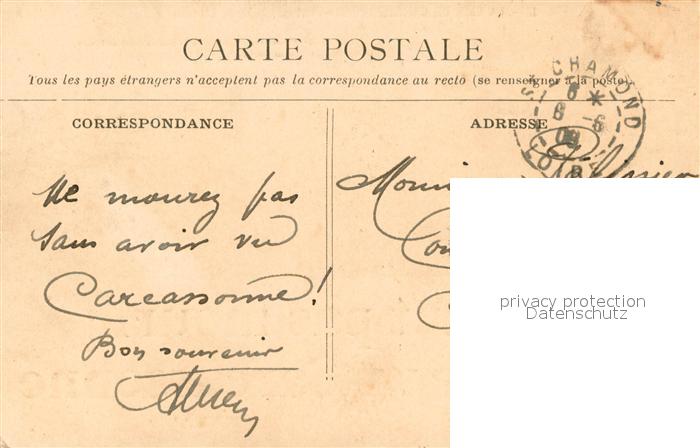 CARTE POSTALE
Tous les pays étrangers n'acceptent pas la correspondance au recto (se renseigner à la poste)
CORRESPONDANCE
ADRESSE
ST CHAMOND
6 *
6 - 6
09
LOIRE
Ne mourez pas
sans avoir vu
Carcassonne!
Bon souvenir
privacy protection
Datenschutz